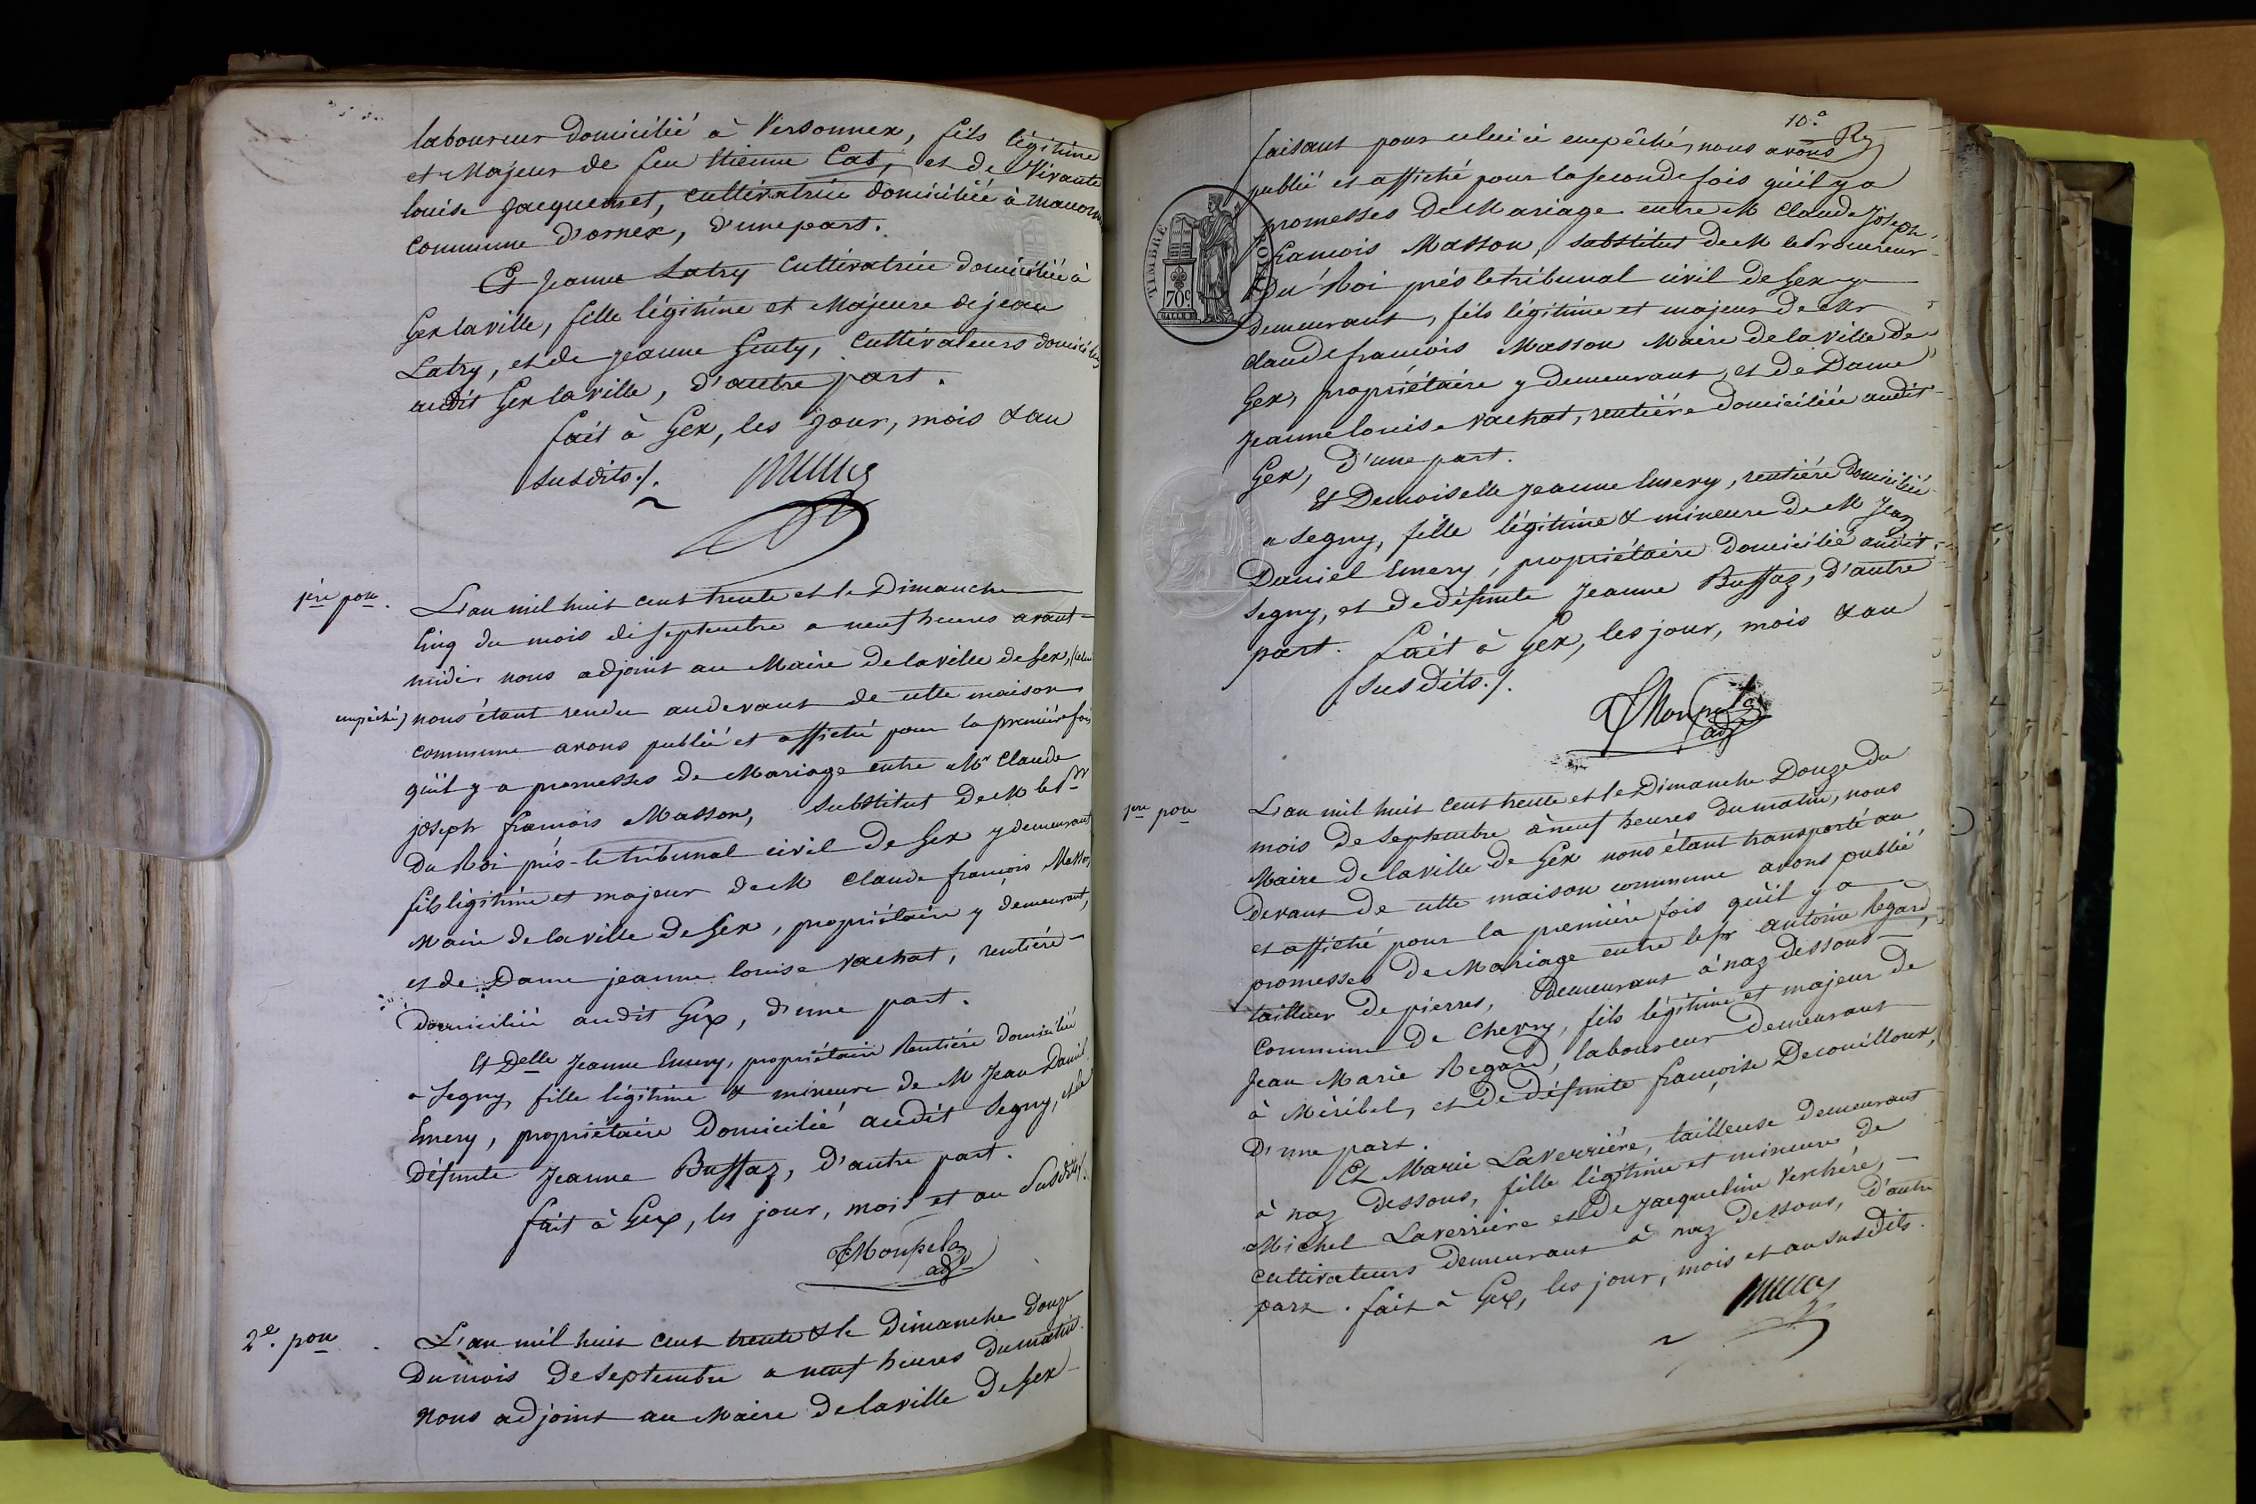 laboureur domicilié à Versonnex, fils légitime
et Majeur de feu Etienne Cas, et de Vivante
louise Jacquemet, cultivatrice domiciliée à
commune d'ornex, d'une part.
Et Jeanne Latry cultivatrice domiciliée à
Gex la ville, fille légitime et Majeure de jean
Latry, et de jeanne Genty, cultivateurs domiciliés
audit Gex la ville, d'autre part.
fait à Gex, les jour, mois & an
susdits./.
1ère pon.
L'an mil huit cent trente et le Dimanche
Cinq du mois de septembre a neuf heures avant-
midi. nous adjoint au Maire de la ville de Gex, (celui
empêché) nous étant rendu audevant de cette maison
commune avons publié et affiché pour la première fois
qu'il y a promesses de Mariage entre Mr Claude
joseph francois Masson, substitut de M le Pr
du Roi près-le tribunal civil de Gex y demeurant
fils légitime et majeur de M Claude francois Masson
Maire de la ville de Gex, propriétaire y demeurant,
et de Dame jeanne louise vachat, rentière-
domiciliée audit Gex, d'une part.
Et Delle Jeanne Emery, propriétaire Rentière domiciliée
a Segny, fille légitime & mineure de M Jean Daniel
Emery, propriétaire Domicilié audit Segny, et de
défunte Jeanne Buffaz, d'autre part.
fait à Gex, les jour, mois et an susdits/.
adj
2e. pon
L'an mil huit cent trente & le Dimanche Douze
Du mois de septembre a neuf heures du matin.
nous adjoint au Maire de la ville de Gex-
10.e
faisant pour celui ci empêché, nous avons
publié et affiché pour la seconde fois qu'il y a
promesses de Mariage entre M Claude Joseph
francois Masson, substitut de M le Procureur
du Roi près le tribunal civil de Gex y
demeurant, fils légitime et majeur de Mr
Claude francois Masson Maire de la ville de
Gex, propriétaire y demeurant, et de Dame
Jeanne louise vachat, rentière domiciliée audit
Gex, d'une part.
Et Demoiselle Jeanne Emery, rentière domiciliée
a Segny, fille légitime & mineure de M Jean
Daniel Emery, propriétaire domicilié audit
Segny, et de défunte Jeanne Buffaz, d'autre
part. fait à Gex, les jour, mois & an
susdits./.
adj
TIMBRE ROYAL
70c
1re pon
L'an mil huit cent trente et le Dimanche Douze du
mois de septembre à neuf heures du matin, nous
Maire de la ville de Gex nous étant transporté au
devant de cette maison commune avons publié
et affiché pour la première fois qu'il y a
promesses de Mariage entre le sr antoine Regard,
tailleur de pierres, demeurant à naz dessous
Commune de Chevry, fils légitime et majeur de
Jean Marie Regard, laboureur demeurant
à Méribel, et de défunte françoise Decouilloux,
D'une part.
Et Marie Laverrière, tailleuse demeurant
à naz dessous, fille légitime et mineure de
Michel Laverrière et de jacqueline Verchère,-
cultivateurs demeurant à naz dessous, d'autre
part. fait à Gex, les jour, mois et an susdits.